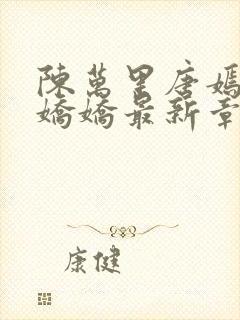 陳萬里唐嫣
嬌嬌最新章
康健